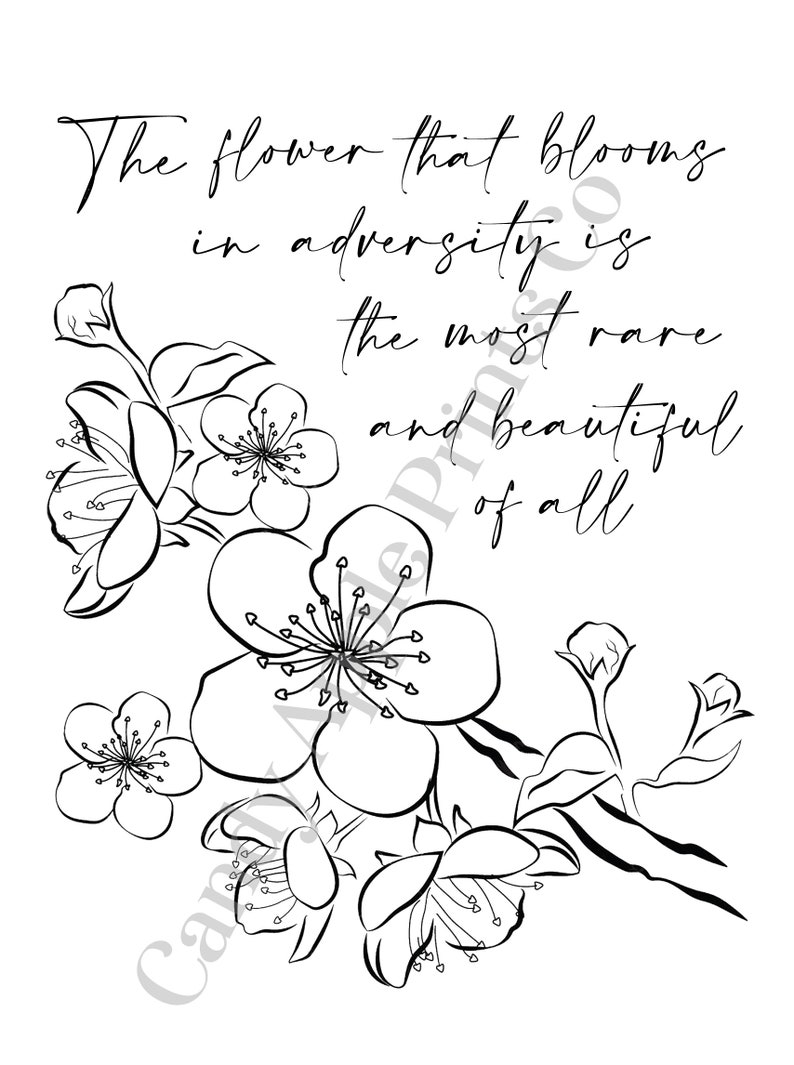 The flower that blooms
in adversity is
the most rare
and beautiful
of all
Candy Apple Prints Co